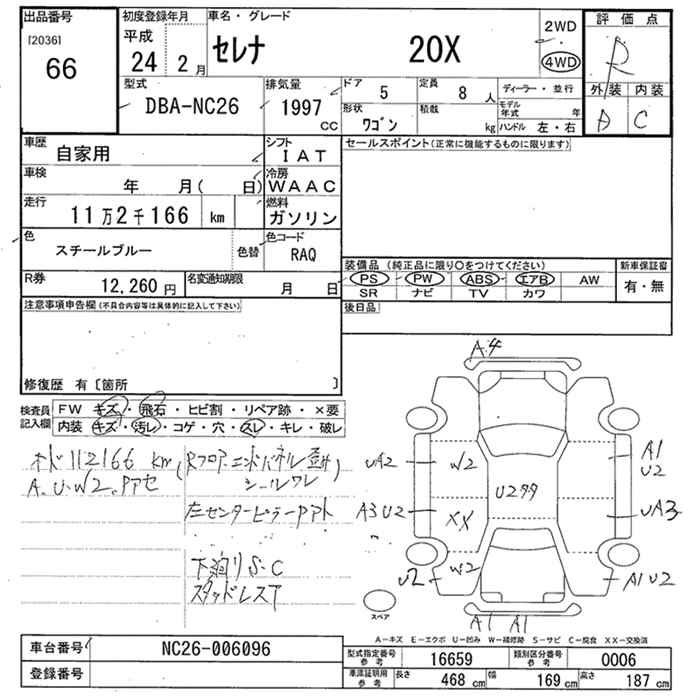 出品番号
[2036]
66
初度登録年月
平成
24 2月
車名・グレード
セレナ 20X
2WD
4WD
評価点
R
外装 内装
A C
型式
DBA-NC26
排気量
1997
cc
ドア 5
定員 8 人
形状 ワゴン
積載 kg
ディーラー・並行
モデル年式 年
ハンドル 左・右
車歴 自家用
シフト IAT
車検 年 月( 日)
冷房 WAAC
走行 11万2千166 km
燃料 ガソリン
色 スチールブルー 色替
色コード RAQ
R券 12,260円
名変通知期限 月 日
セールスポイント(正常に機能するものに限ります)
装備品(純正品に限り○をつけてください)
PS PW ABS エアB AW
SR ナビ TV カワ
新車保証書
有・無
後日品
注意事項申告欄(不具合内容等は具体的に記入して下さい)
修復歴 有〔箇所 〕
検査員記入欄
FW キズ・飛石・ヒビ割・リペア跡・×要
内装 キズ・汚レ・コゲ・穴・スレ・キレ・破レ
オド112166 km
(Rフロア・エンドパネル歪み)
シールワレ
A.U.W2.Pアセ
左センターピラーPアト
下廻りS・C
スタッドレスT
A4
UA2
W2
A1
U2
U2タタ
A3U2
XX
UA3
U2
W2
A1U2
A1 A1
スペア
A-キズ E-エクボ U-凹み W-補修跡 S-サビ C-腐食 XX-交換済
車台番号 NC26-006096
登録番号
型式指定番号 参考 16659
類別区分番号 参考 0006
車庫証明用 参考
長さ 468 cm
幅 169 cm
高さ 187 cm